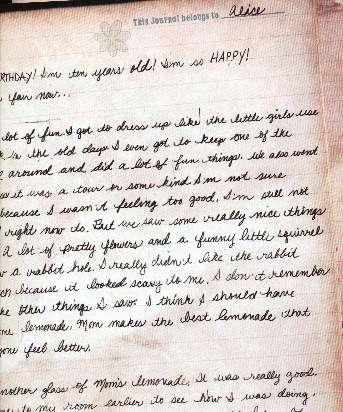 This Journal belongs to Alice
RTHDAY! I'm ten years old! I'm so HAPPY!
fair now...
lot of fun I got to dress up like the little girls use
in the old days I even got to keep one of the
around and did a lot of fun things. We also went
it was a tour or some kind I'm not sure
because I wasn't feeling too good. I'm still not
right now do. But we saw some really nice things
A lot of pretty flowers and a funny little squirrel
a rabbit hole. I really didn't like the rabbit
because it looked scary to me. I don't remember
the other things I saw. I think I should have
lemonade. Mom makes the best lemonade that
feel better.
nother glass of Mom's lemonade. It was really good.
to my room earlier to see how I was doing.